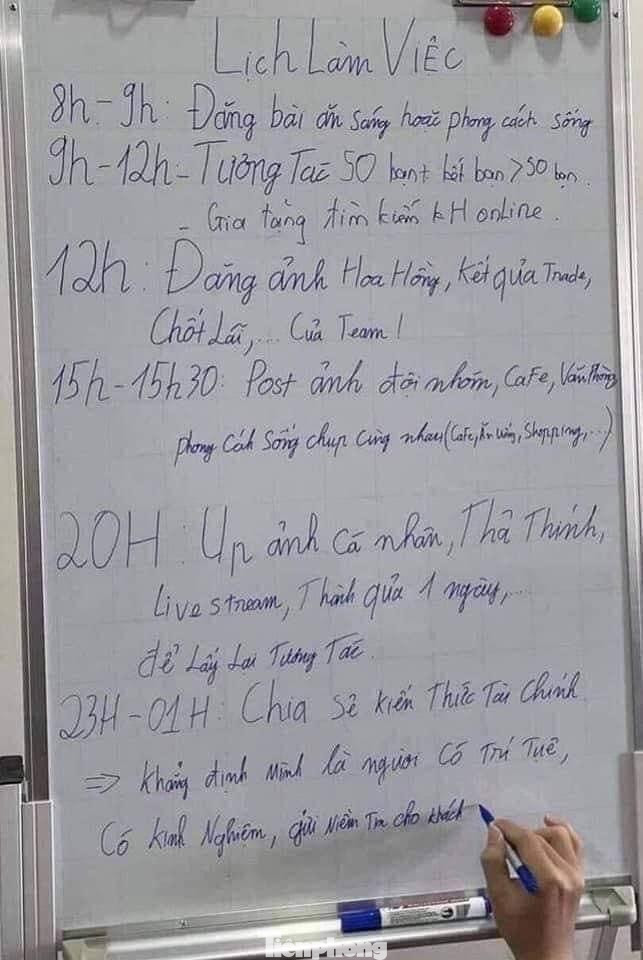 Lịch Làm Việc
8h-9h: Đăng bài ăn sáng hoặc phong cách sống
9h-12h- Tương Tác 50 bạn+ kết bạn >50 bạn.
Gia tăng tìm kiếm KH online.
12h: Đăng ảnh Hoa Hồng, Kết quả Trade,
Chốt Lãi,... Của Team!
15h-15h30: Post ảnh đội nhóm, Cafe, Văn Phòng
phong Cách Sống chụp Cùng nhau (Cafe, Ăn uống, Shopping,...)
20H: Up ảnh Cá nhân, Thả Thính,
Livestream, Thành quả 1 ngày,...
để Lấy Lại Tương Tác.
23H-01H: Chia Sẻ Kiến Thức Tài Chính.
=> Khẳng định Mình là người Có Trí Tuệ,
Có Kinh Nghiệm, gửi Niềm Tin cho khách
tienphong